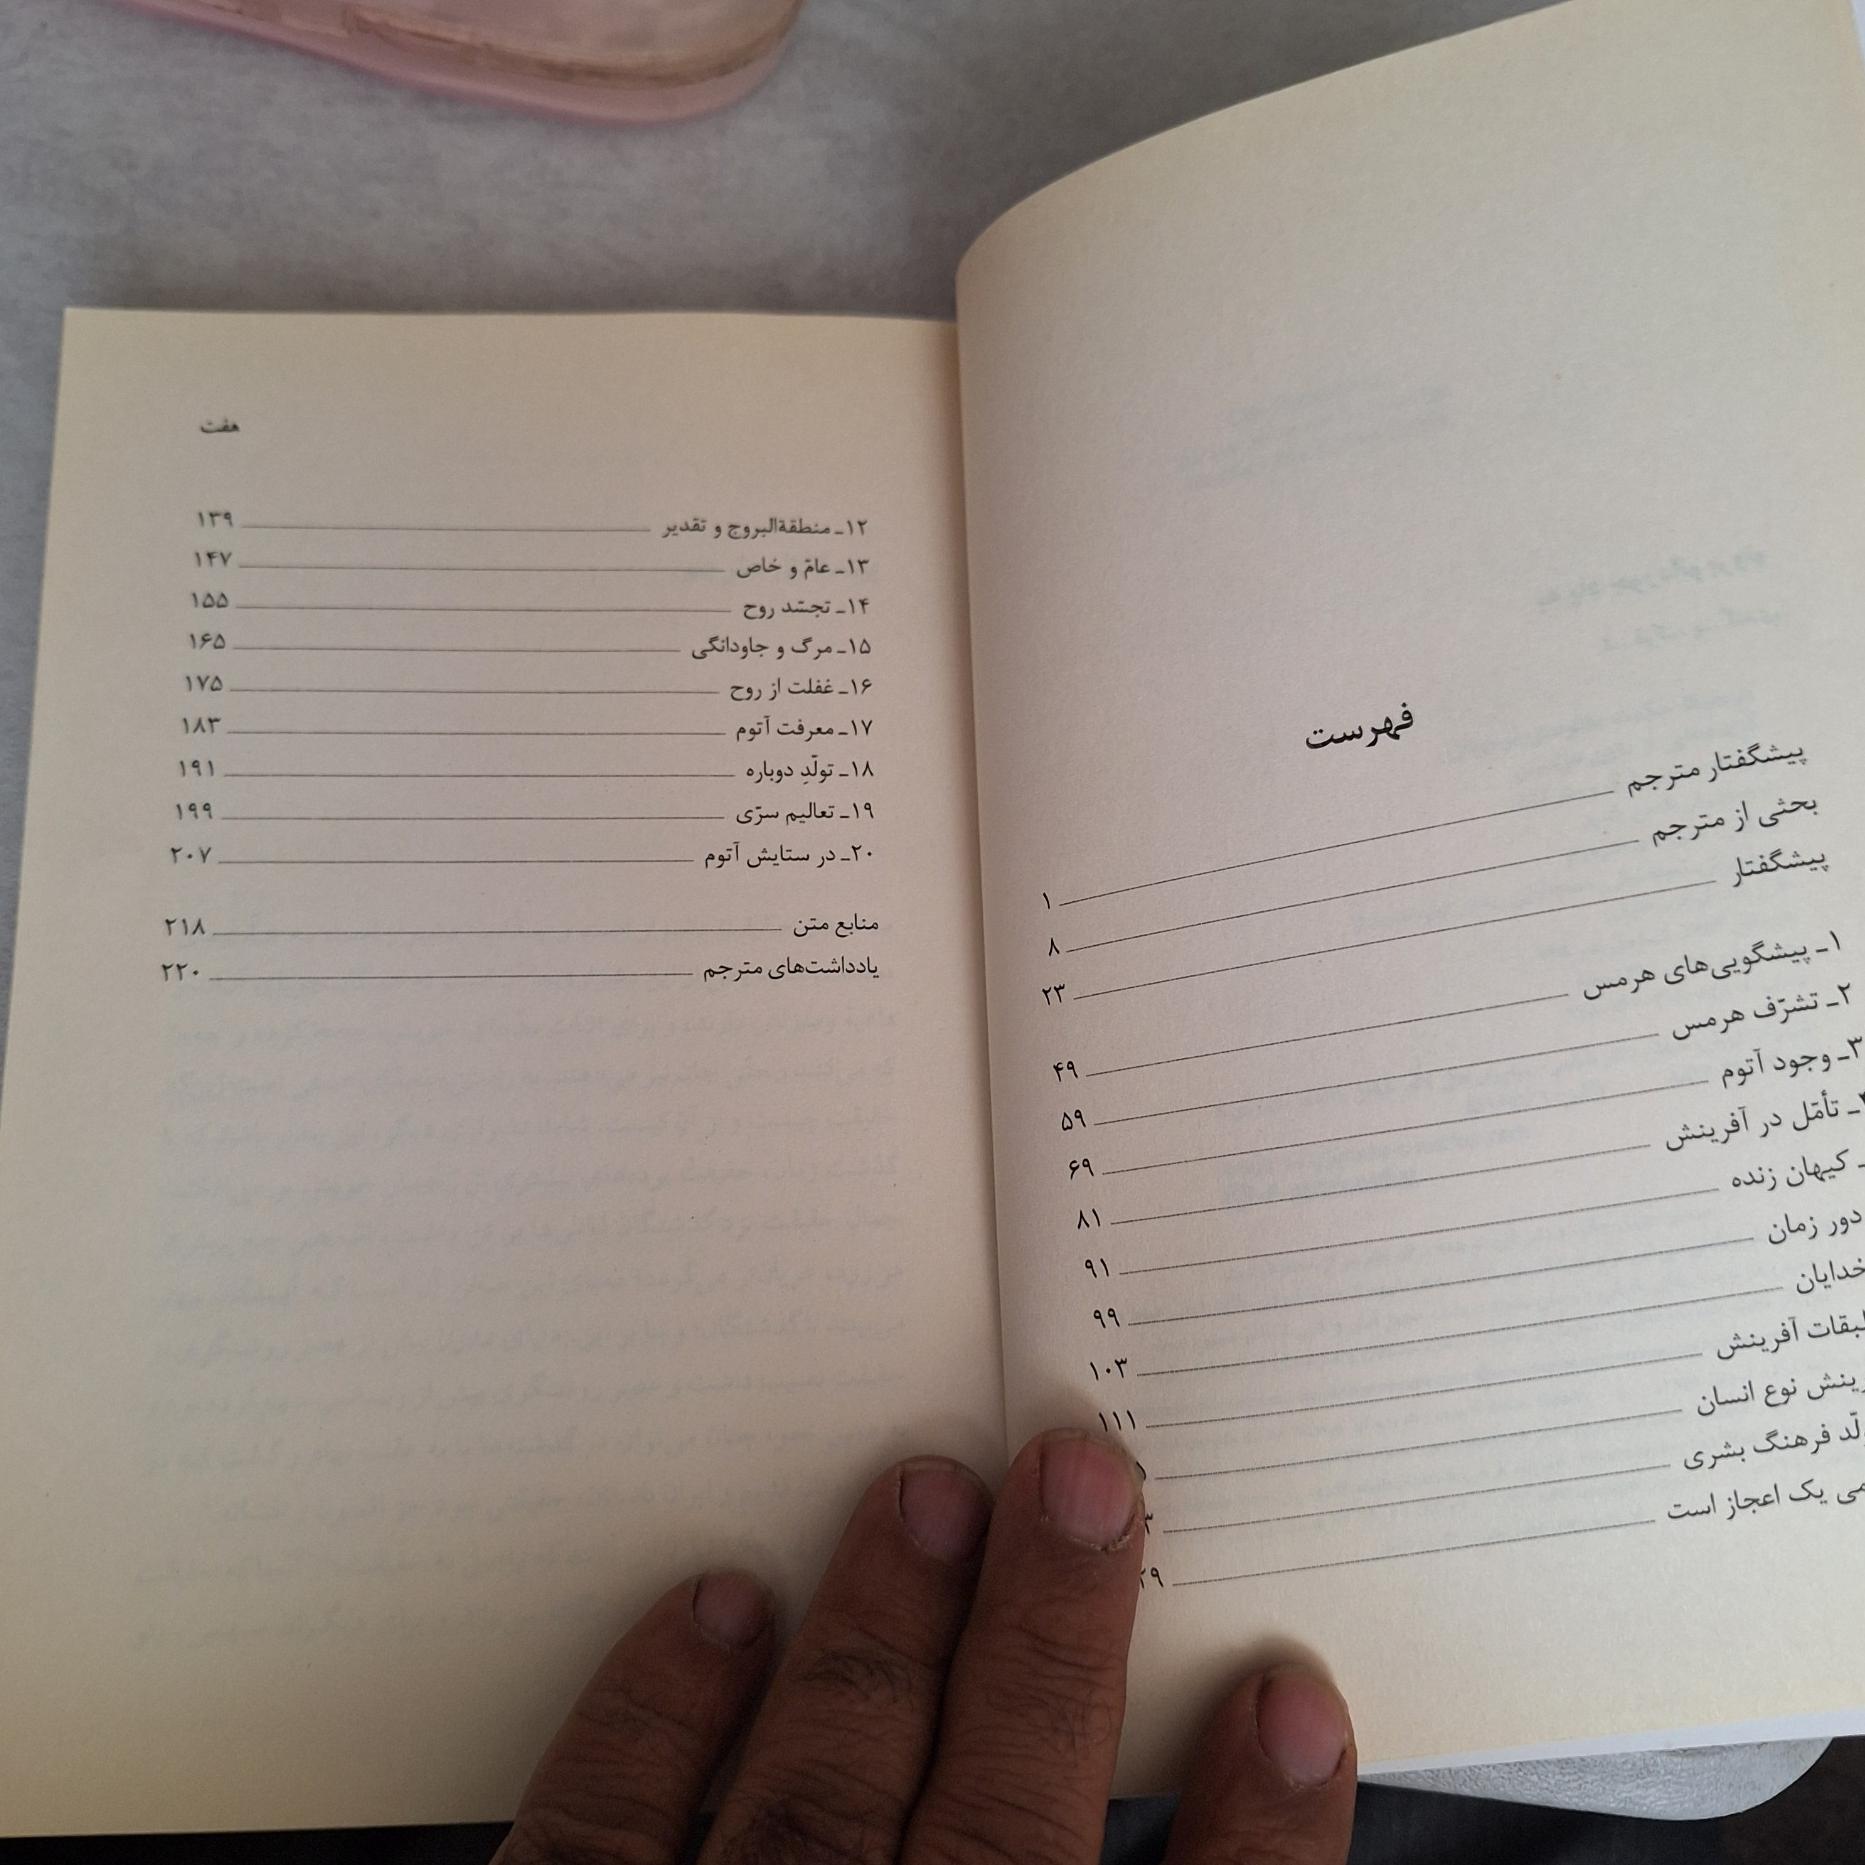 فهرست
پیشگفتار مترجم ۱
بحثی از مترجم ۸
پیشگفتار ۲۳
۱ـ پیشگویی‌های هرمس ۴۹
۲ـ تشرّف هرمس ۵۹
۳ـ وجود آتوم ۶۹
ـ تأمّل در آفرینش ۸۱
ـ کیهان زنده ۹۱
دور زمان ۹۹
خدایان ۱۰۳
آفرینش ۱۱۱
نوع انسان
فرهنگ بشری
یک اعجاز است
هفت
۱۲ـ منطقةالبروج و تقدیر ۱۳۹
۱۳ـ عامّ و خاص ۱۴۷
۱۴ـ تجسّد روح ۱۵۵
۱۵ـ مرگ و جاودانگی ۱۶۵
۱۶ـ غفلت از روح ۱۷۵
۱۷ـ معرفت آتوم ۱۸۳
۱۸ـ تولّدِ دوباره ۱۹۱
۱۹ـ تعالیم سرّی ۱۹۹
۲۰ـ در ستایش آتوم ۲۰۷
منابع متن ۲۱۸
یادداشت‌های مترجم ۲۲۰